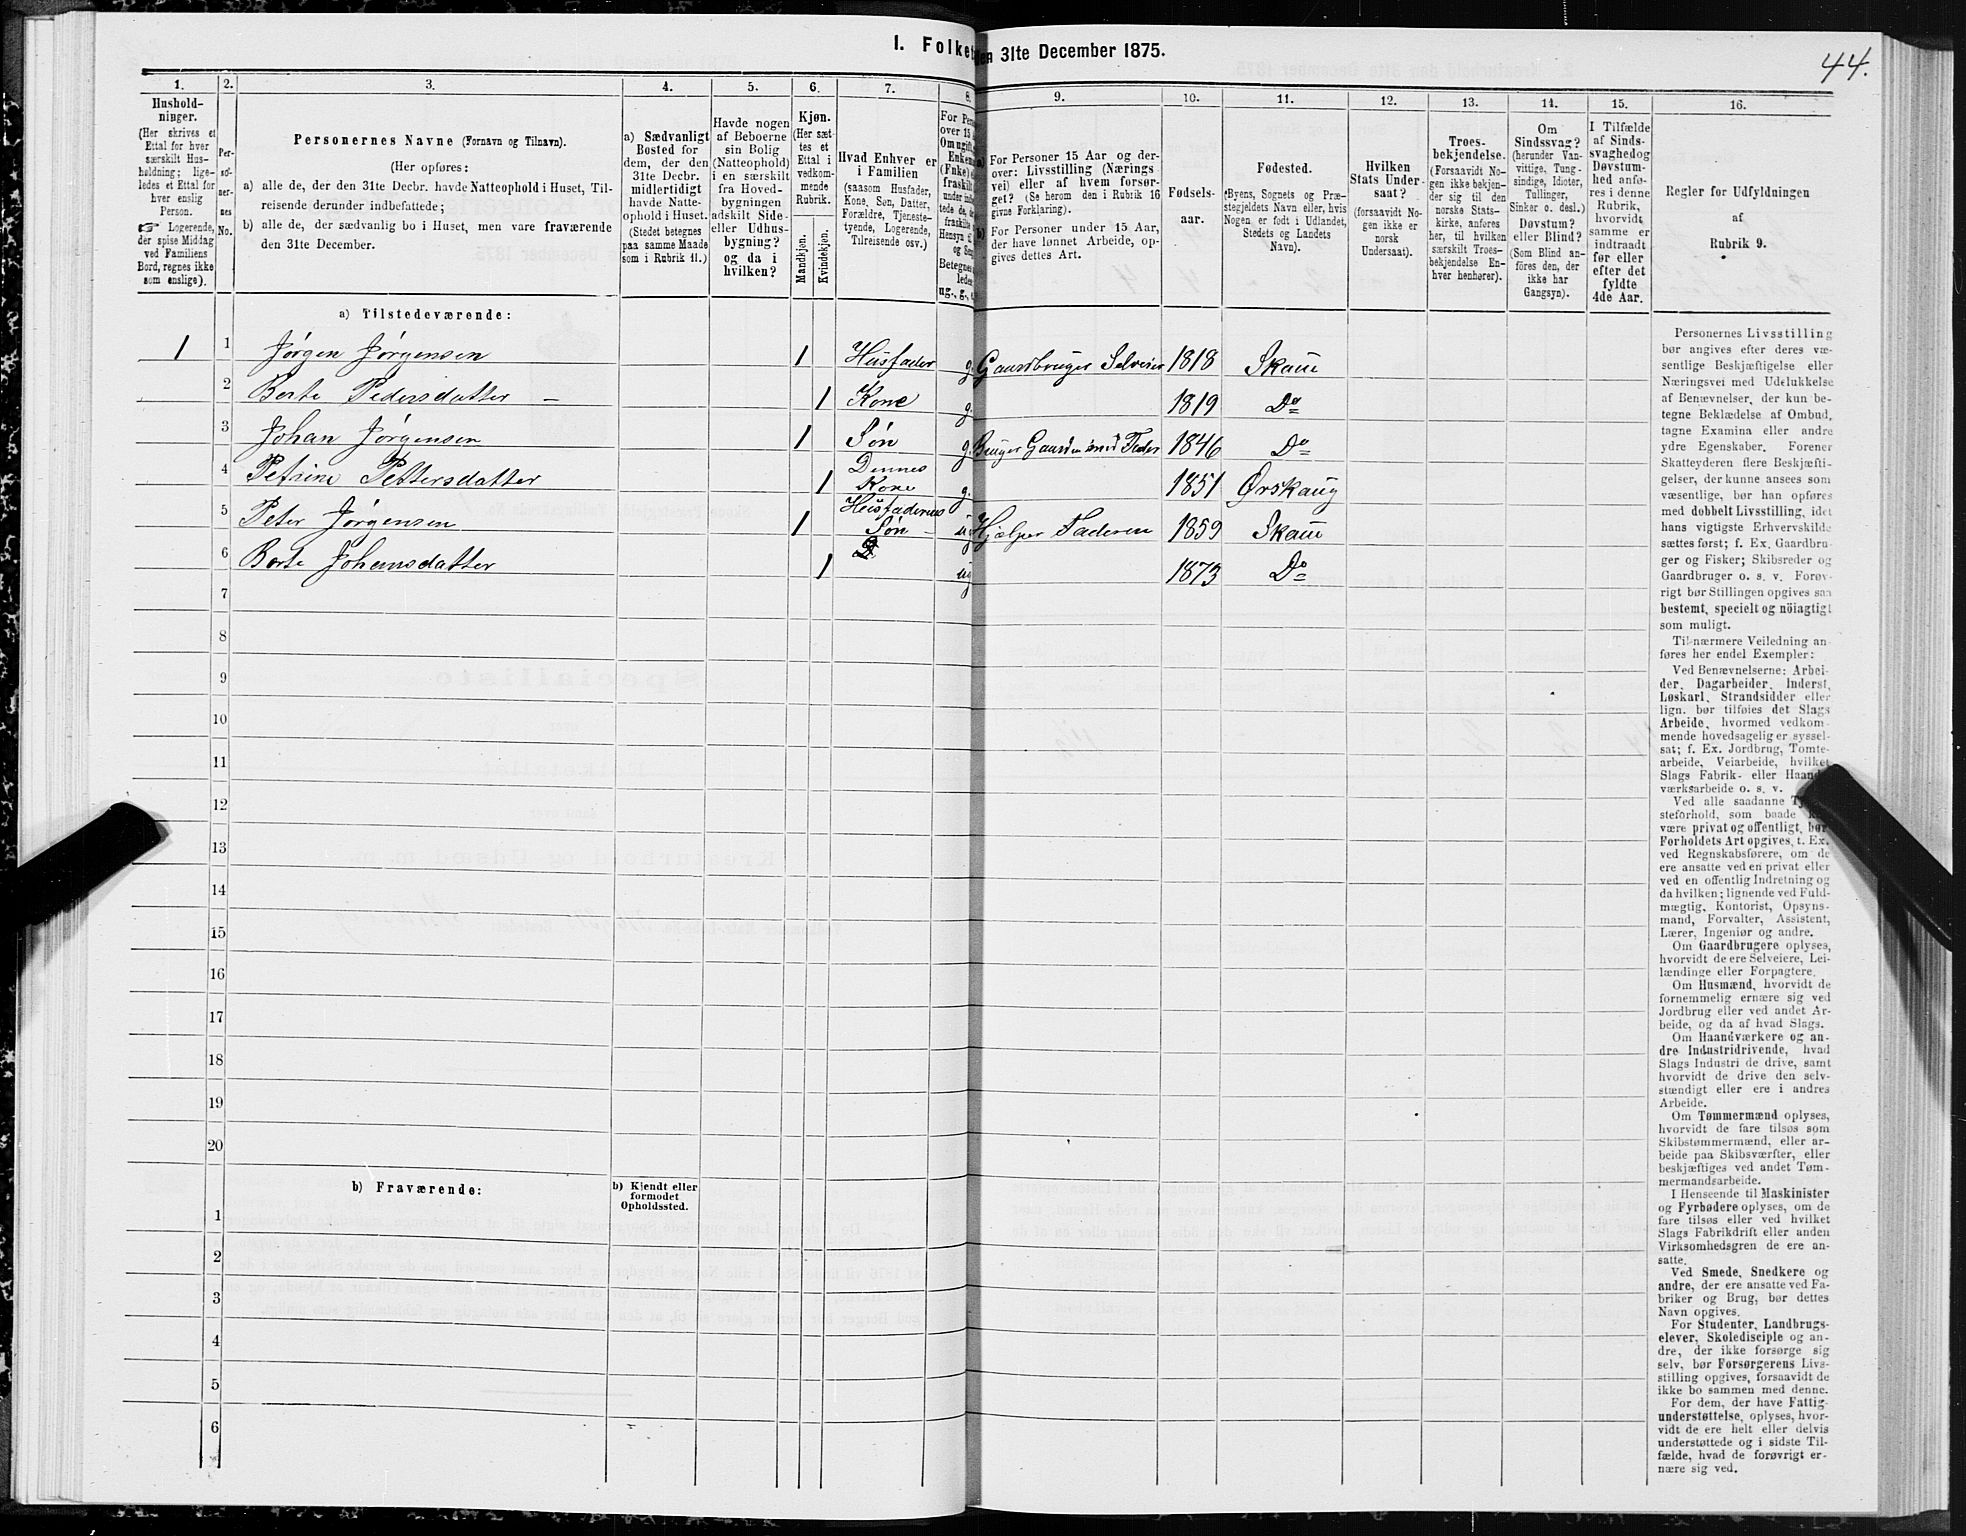 I. Folket
en 31te December 1875.
44.
1.
2.
3.
4.
5.
6.
7.
8.
9.
10.
11.
12.
13.
14.
15.
16.
Hushold-
ninger.
(Her skrives et
Ettal for hver
særskilt Hus-
holdning; lige-
ledes et Ettal for
hver enslig
Person.
☞ Logerende,
der spise Middag
ved Familiens
Bord, regnes ikke
som enslige).
Per-
so-
ner-
nes
No.
Personernes Navne (Fornavn og Tilnavn).
(Her opføres:
a) alle de, der den 31te Decbr. havde Natteophold i Huset, Til-
reisende derunder indbefattede;
b) alle de, der sædvanlig bo i Huset, men vare fraværende
den 31te December.
a) Sædvanligt
Bosted for
dem, der den
31te Decbr.
midlertidigt
havde Natte-
ophold i Huset.
(Stedet betegnes
paa samme Maade
som i Rubrik 11.)
Havde nogen
af Beboerne
sin Bolig
(Natteophold)
i en særskilt
fra Hoved-
bygningen
adskilt Side-
eller Udhus-
bygning?
og da i
hvilken?
Kjøn.
(Her sæt-
tes et
Ettal i
vedkom-
mende
Rubrik.
Mandkjøn.
Kvindekjøn.
Hvad Enhver er
i Familien
(saasom Husfader,
Kone, Søn, Datter,
Forældre, Tjeneste-
tyende, Logerende,
Tilreisende osv.)
For Pers
over 15
Om ugift,
Enkem
(Fnke) e
fraskilt
under
tede de,
fraskilte
Hensyn
og Sen
Betegnes
ledes
ug., g.,
a)
For Personer 15 Aar og der-
over: Livsstilling (Nærings
vei) eller af hvem forsør-
get? (Se herom den i Rubrik 16
givne Forklaring).
b)
For Personer under 15 Aar,
der have lønnet Arbeide, op-
gives dettes Art.
Fødsels-
aar.
Fødested.
(Byens, Sognets og Præ-
stegjeldets Navn eller, hvis
Nogen er født i Udlandet,
Stedets og Landets
Navn).
Hvilken
Stats Under-
saat?
(forsaavidt No-
gen ikke er
norsk
Undersaat).
Troes-
bekjendelse.
(Forsaavidt No-
gen ikke bekjen-
der sig til den
norske Stats-
kirke, anføres
her, til hvilken
særskilt Troes-
bekjendelse En-
hver henhører).
Om
Sindssvag?
(herunder Van-
vittige, Tung-
sindige, Idioter,
Tullinger,
Sinker o. desl.)
Døvstum?
eller Blind?
(Som Blind an-
føres den, der
ikke har
Gangsyn).
I Tilfælde
af Sinds-
svaghed og
Døvstum-
hed anfø-
res i denne
Rubrik,
hvorvidt
samme er
indtraadt
før eller
efter det
fyldte
4de Aar.
Regler for Udfyldningen
af
Rubrik 9.
a) Tilstedeværende:
1 1 Jørgen Jørgensen 1 Husfader g. Gaardbruger Selveier 1818 Skaue
2 Berte Pedersdatter – 1 Kone g. 1819 Do
3 Johan Jørgensen 1 Søn g. Bruger Gaarden med Fader 1846 Do
4 Petrine Pettersdatter 1 Dennes Kone g. 1851 Ørskaug
5 Peter Jørgensen 1 Husfaderens Søn – ug Hjælper Faderen 1859 Skaue
6 Berte Johansdatter 1 D ug 1873 Do
7
8
9
10
11
12
13
14
15
16
17
18
19
20
b) Fraværende:
b) Kjendt eller
formodet
Opholdssted.
1
2
3
4
5
6
Personernes Livsstilling
bør angives efter deres væ-
sentlige Beskjæftigelse eller
Næringsvei med Udelukkelse
af Benævnelser, der kun be-
tegne Beklædelse af Ombud,
tagne Examina eller andre
ydre Egenskaber. Forener
Skatteyderen flere Beskjæfti-
gelser, der kunne ansees som
væsentlige, bør han opføres
med dobbelt Livsstilling, idet
hans vigtigste Erhvervskilde
sættes først; f. Ex. Gaardbru-
ger og Fisker; Skibsreder og
Gaardbruger o. s. v. Forøv-
rigt bør Stillingen opgives saa
bestemt, specielt og nöiagtigt
som muligt.
Til nærmere Veiledning an-
føres her endel Exempler:
Ved Benævnelserne: Arbei-
der, Dagarbeider, Inderst,
Løskarl, Strandsidder eller
lign. bør tilføies det Slags
Arbeide, hvormed vedkom-
mende hovedsagelig er syssel-
sat; f. Ex. Jordbrug, Tomte-
arbeide, Veiarbeide, hvilket
Slags Fabrik- eller Haand-
værksarbeide o. s. v.
Ved alle saadanne
steforhold, som baade
være privat og offentligt, bør
Forholdets Art opgives, t. Ex.
ved Regnskabsførere, om de
ere ansatte ved en privat eller
ved en offentlig Indretning og
da hvilken; lignende ved Fuld-
mægtig, Kontorist, Opsyns-
mand, Forvalter, Assistent,
Lærer, Ingeniør og andre.
Om Gaardbrugere oplyses,
hvorvidt de ere Selveiere, Lei-
lændinge eller Forpagtere.
Om Husmænd, hvorvidt de
fornemmelig ernære sig ved
Jordbrug eller ved andet Ar-
beide, og da af hvad Slags.
Om Haandværkere og an-
dre Industridrivende, hvad
Slags Industri de drive, samt
hvorvidt de drive den selv-
stændigt eller ere i andres
Arbeide.
Om Tømmermænd oplyses,
hvorvidt de fare tilsøs som
Skibstømmermænd, eller ar-
beide paa Skibsværfter, eller
beskjæftiges ved andet Tøm-
mermandsarbeide.
I Henseende til Maskinister
og Fyrbødere oplyses, om de
fare tilsøs eller ved hvilket
Slags Fabrikdrift eller anden
Virksomhedsgren de ere an-
satte.
Ved Smede, Snedkere og
andre, der ere ansatte ved Fa-
briker og Brug, bør dettes
Navn opgives.
For Studenter, Landbrugs-
elever, Skoledisciple og an-
dre, der ikke forsørge sig
selv, bør Forsørgerens Livs-
stilling opgives, forsaavidt de
ikke bo sammen med denne.
For dem, der have Fattig-
understøttelse, oplyses, hvor-
vidt de ere helt eller delvis
understøttede og i sidste Til-
fælde, hvad de forøvrigt er-
nære sig ved.